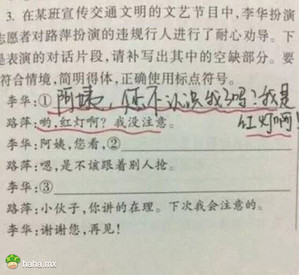 3. 在某班宣传交通文明的文艺节目中,李华扮演
志愿者对路萍扮演的违规行人进行了耐心劝导。下
是表演的对话片段,请补写出其中的空缺部分。要
符合情境,简明得体,正确使用标点符号。
李华:①阿姨,你不认识我了吗?我是
红灯啊!
路萍:哟,红灯啊?我没注意。
李华:阿姨,您看,②
路萍:嗯,是不该跟着别人抢。
李华:③
路萍:小伙子,你讲的在理。下次我会注意的。
李华:谢谢您,再见!
baha.mx